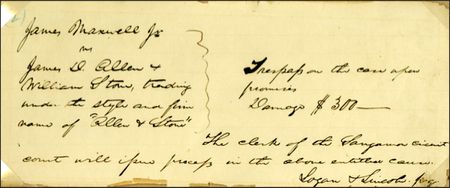 James Maxwell Jr
vs
James D. Allen &
William Stone, trading
under the style and firm
name of "Allen & Stone"
Trespass on the case upon
promises
Damage $300—
The clerk of the Sangamon circuit
court will issue precept in the above entitled cause.
Logan & Lincoln p.q.